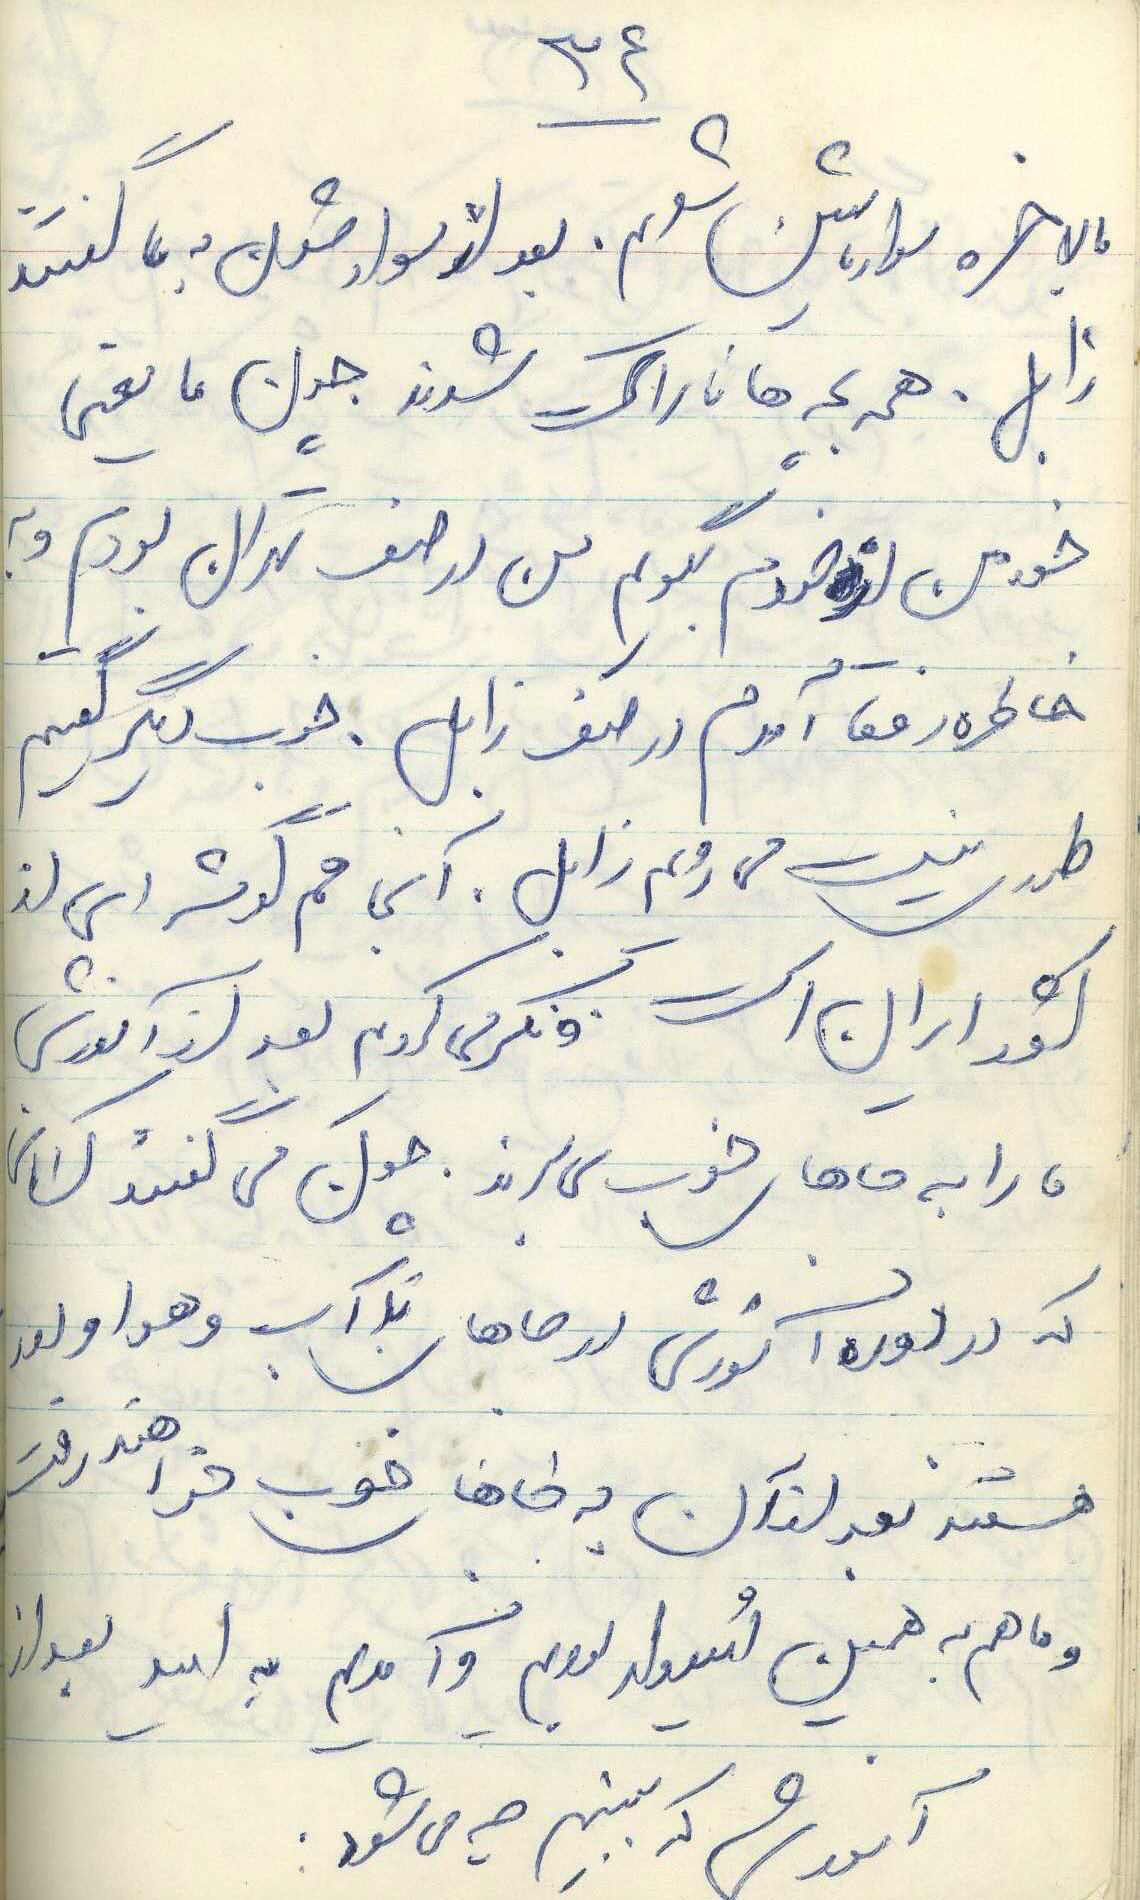 ۳۴
بالاخره سوار ماشین شدیم. بعد از سوار شدن به ما گفتند
زابل. همه بچه ها ناراحت شدند چون ما یعنی
خود من از خودم بگویم من در صف تهران بودم و به
خاطره رفقا آمدم در صف زابل. خوب دیگر گفتیم
طوری نیست می رویم زابل. آنجا هم گوشه ای از
کشور ایران است فکر می کردیم بعد از آموزش
ما را به جاهای خوب می برند. چون می گفتند کسانی
که در دوره آموزش در جاهای بد آب و هوا و دور
هستند بعد از آن به جاهای خوب خواهند رفت
و ما هم به همین امیدوار بودیم و آمدیم به امید بعد از
آموزش که ببینیم چه می شود: